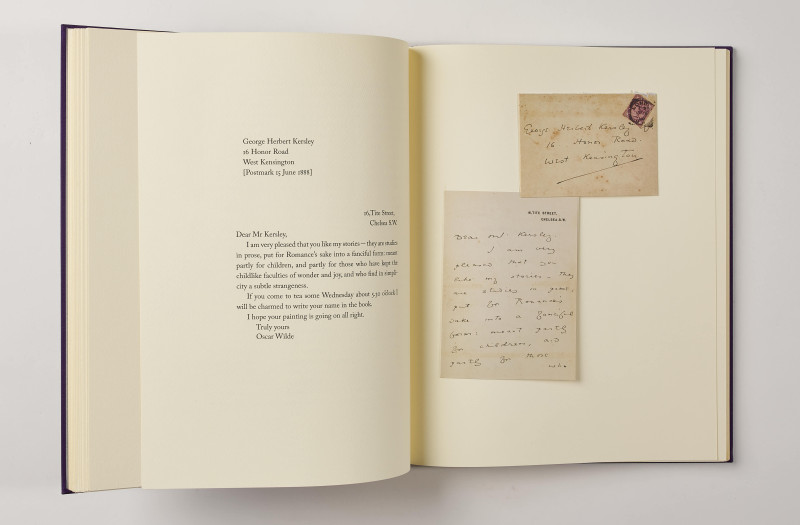 George Herbert Kersley
16 Honor Road
West Kensington
[Postmark 15 June 1888]
16, Tite Street,
Chelsea S.W.
Dear Mr Kersley,
I am very pleased that you like my stories — they are studies
in prose, put for Romance's sake into a fanciful form: meant
partly for children, and partly for those who have kept the
childlike faculties of wonder and joy, and who find in simpli-
city a subtle strangeness.
If you come to tea some Wednesday about 5.30 o'clock I
will be charmed to write your name in the book.
I hope your painting is going on all right.
Truly yours
Oscar Wilde
George Herbert Kersley
16 Honor Road.
West Kensington
16, TITE STREET,
CHELSEA. S.W.
Dear Mr. Kersley
I am very
pleased that you
like my stories. They
are studies in prose,
put for Romance's
sake into a fanciful
form: meant partly
for children, and
partly for those
who